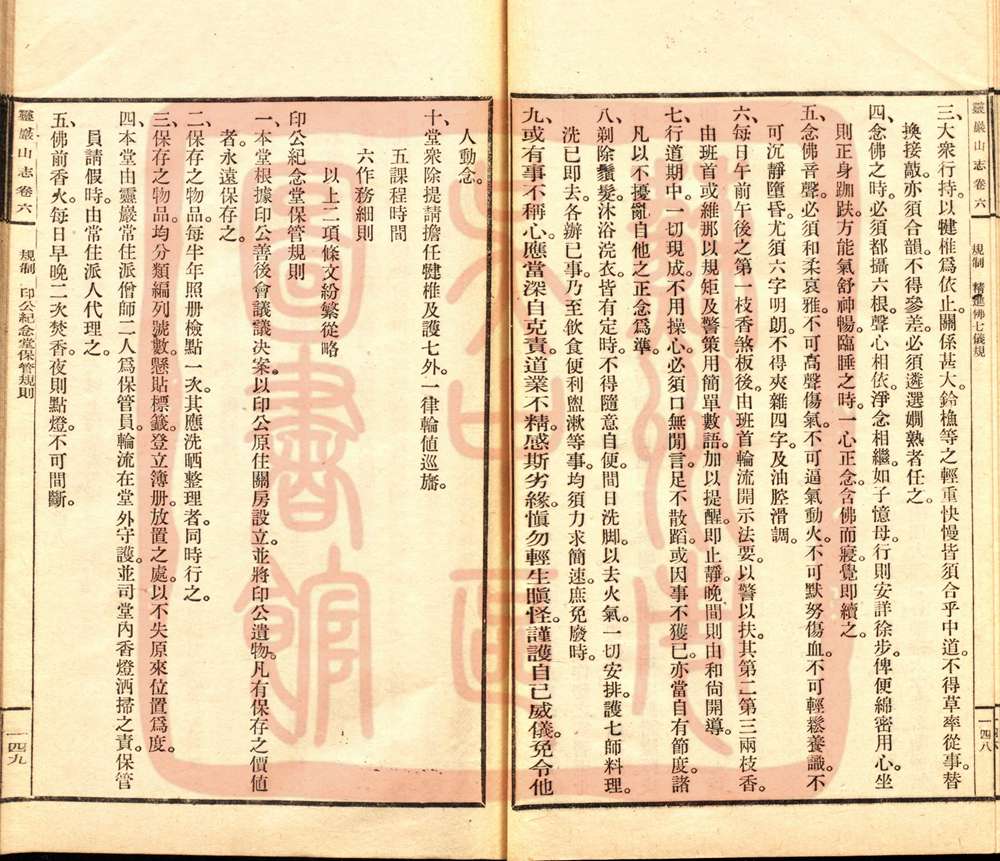 靈巖山志卷六
規制 精進佛七儀規
一四八
三、大衆行持。以犍椎爲依止。關係甚大。鈴樵等之輕重快慢皆須合乎中道。不得草率從事。替
換接敲。亦須合韻。不得參差。必須遴選嫻熟者任之。
四、念佛之時。必須都攝六根。聲心相依。淨念相繼。如子憶母。行則安詳徐步。俾便綿密用心。坐
則正身跏趺。方能氣舒神暢。臨睡之時。一心正念。含佛而寢。覺即續之。
五、念佛音聲。必須和柔哀雅。不可高聲傷氣。不可逼氣動火。不可默努傷血。不可輕鬆養識。不
可沉靜墮昏。尤須六字明朗。不得夾雜四字。及油腔滑調。
六、每日午前午後之第一枝香煞板後。由班首輪流開示法要。以警以扶。其第二第三兩枝香。
由班首或維那以規矩及警策用簡單數語。加以提醒。即止靜。晚間則由和尚開導。
七、行道期中。一切現成。不用操心。必須口無閒言。足不散蹈。或因事不獲已。亦當自有節度。諸
凡以不擾亂自他之正念爲準。
八、剃除鬚髮。沐浴浣衣。皆有定時。不得隨意自便。間日洗脚。以去火氣。一切安排。護七師料理。
洗已即去。各辦已事。乃至飲食便利盥漱等事。均須力求簡速。庶免廢時。
九、或有事不稱心。應當深自克責。道業不精。感斯劣緣。愼勿輕生瞋怪。謹護自已威儀。免令他
人動念。
十、堂衆除提請擔任犍椎及護七外。一律輪值巡旛。
五課程時間
六作務細則
以上二項條文紛繁從略
印公紀念堂保管規則
一、本堂根據印公善後會議議决案。以印公原住關房設立。並將印公遺物。凡有保存之價值
者。永遠保存之。
二、保存之物品。每半年照册檢點一次。其應洗晒整理者。同時行之。
三、保存之物品。均分類編列號數。懸貼標籤。登立簿册。放置之處。以不失原來位置爲度。
四、本堂由靈巖常住派僧師二人爲保管員。輪流在堂外守護。並司堂內香燈洒掃之責。保管
員請假時。由常住派人代理之。
五、佛前香火。每日早晚二次焚香。夜則點燈。不可間斷。
靈巖山志卷六
規制 印公紀念堂保管規則
一四九